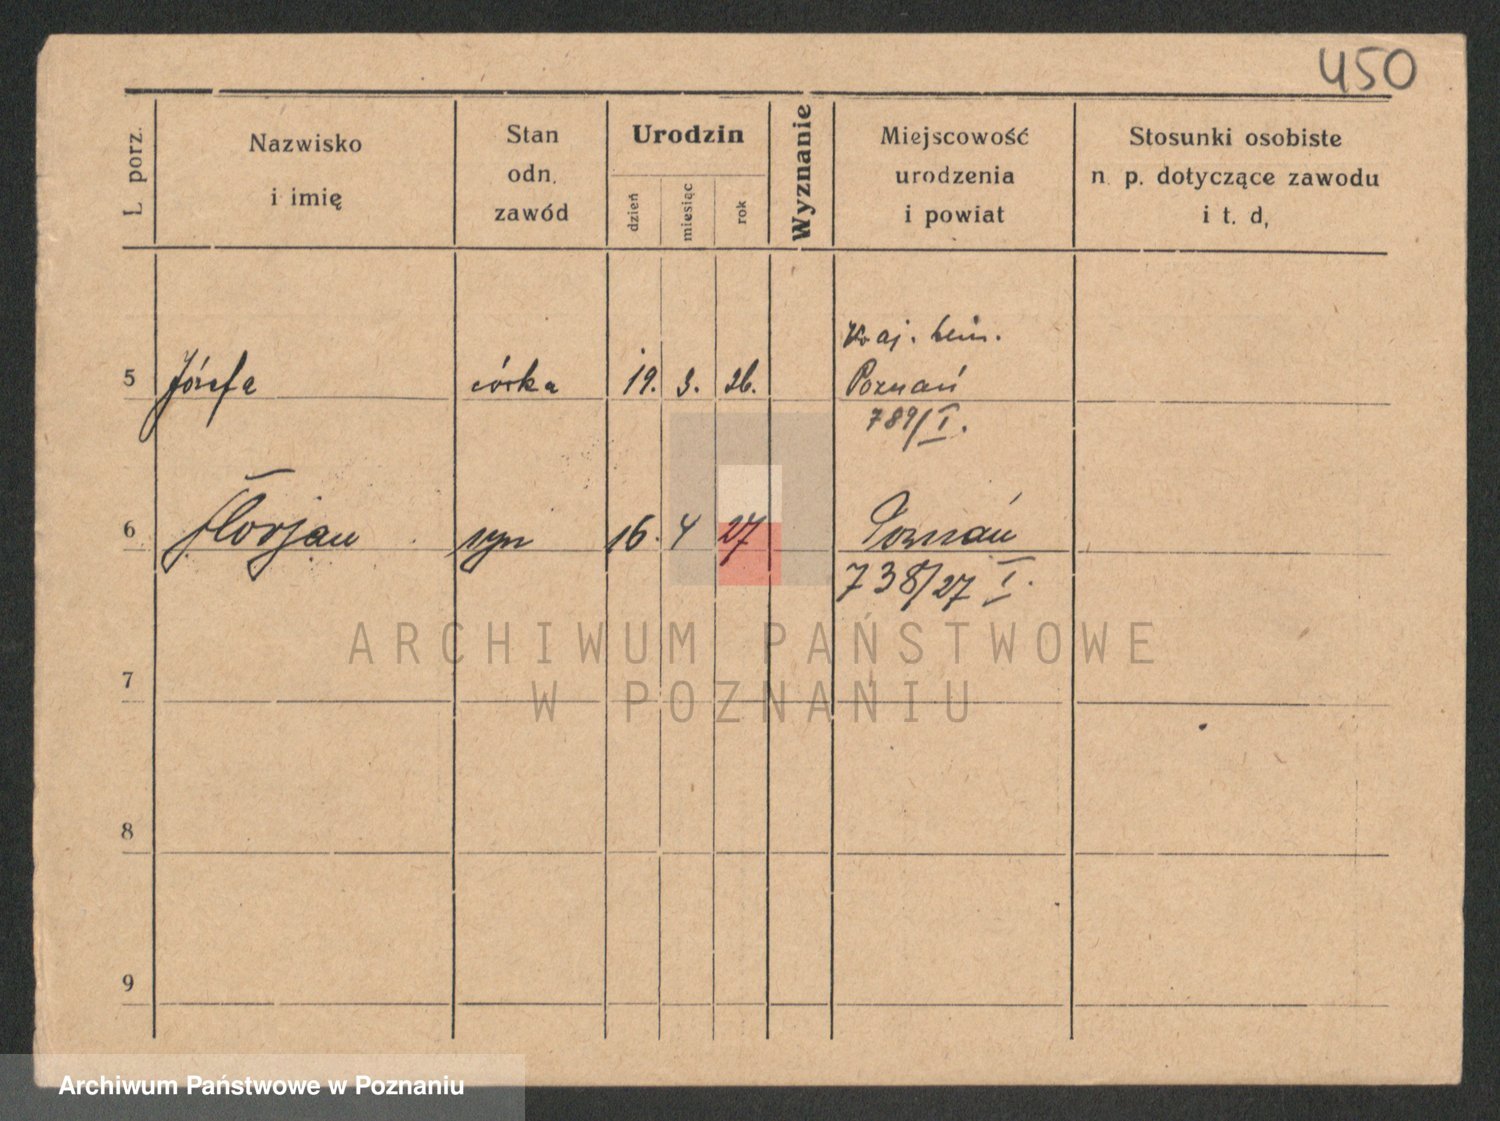 450
L. porz.
Nazwisko
i imię
Stan
odn.
zawód
Urodzin
dzień
miesiąc
rok
Wyznanie
Miejscowość
urodzenia
i powiat
Stosunki osobiste
n. p. dotyczące zawodu
i t. d,
5 Józefa córka 19. 3. 26. Poznań
789/I.
6 Florjan syn 16. 4 27 Poznań
738/27 I.
ARCHIWUM PAŃSTWOWE
W POZNANIU
7
8
9
Archiwum Państwowe w Poznaniu